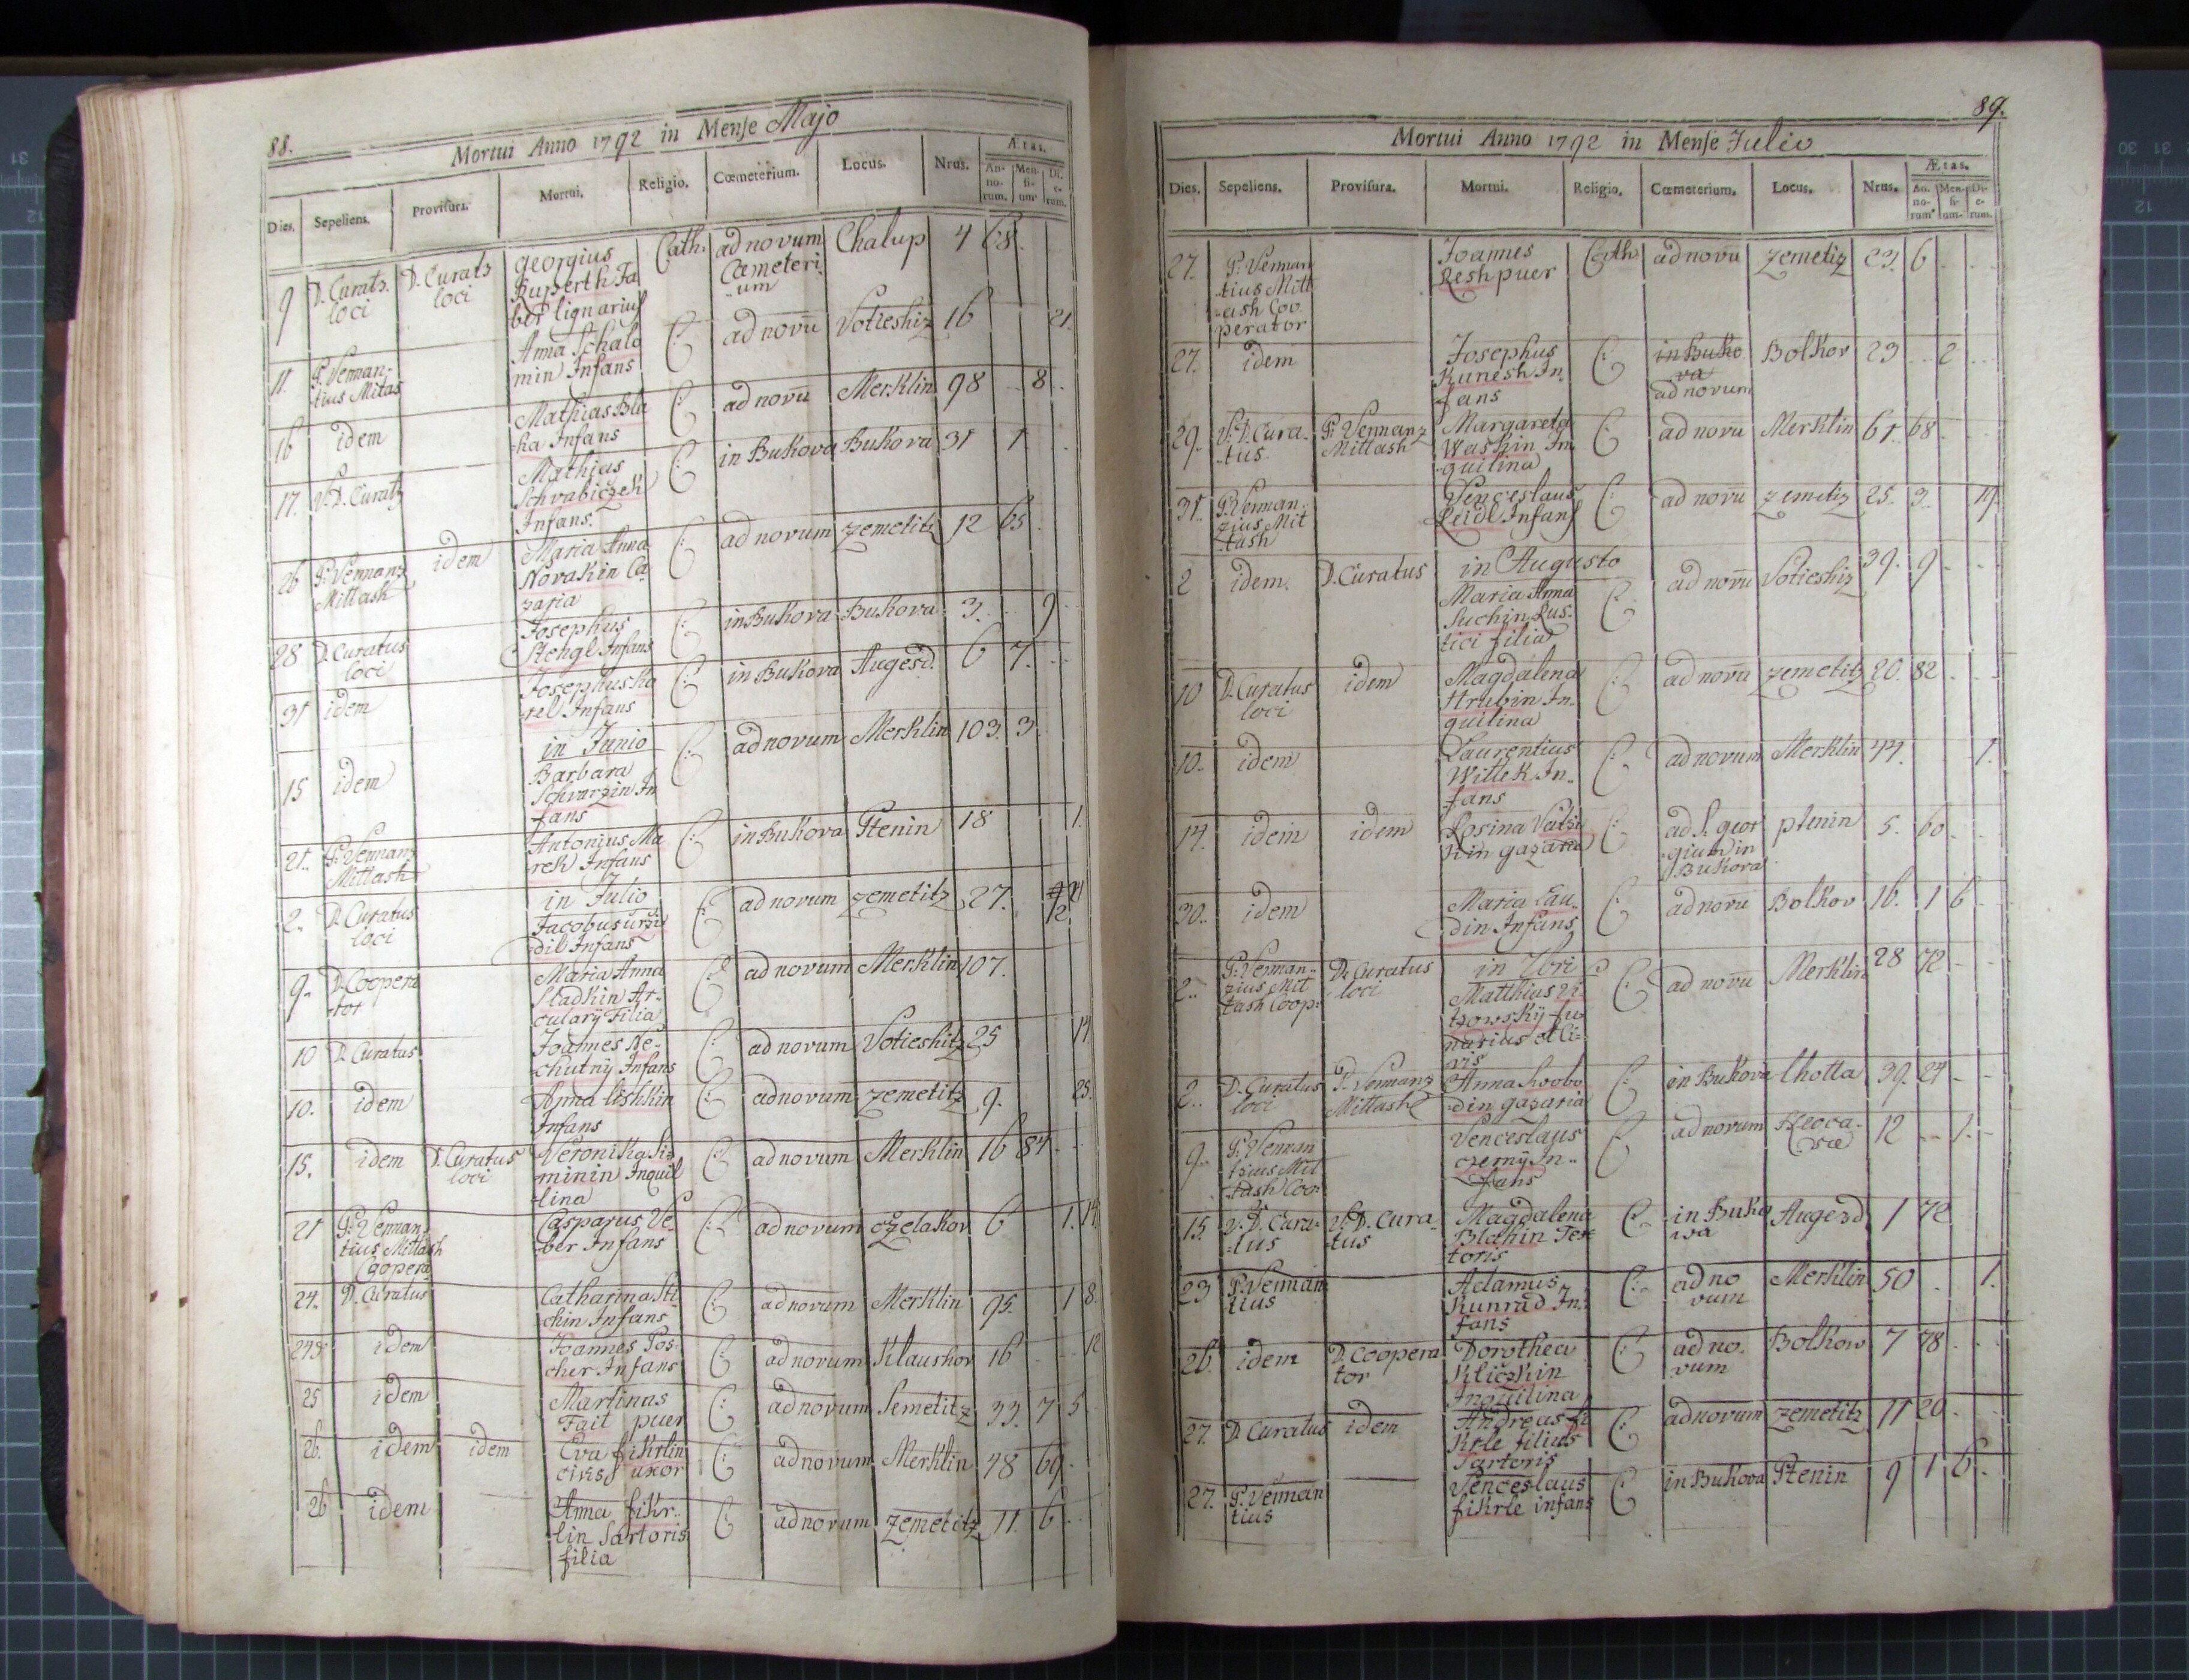 88.
Mortui Anno 1792 in Mense Majo
Dies. Sepeliens. Provisura. Mortui. Religio. Cœmeterium. Locus. Nrus. Ætas.
An-no-rum. Men-si-um. Di-e-rum.
9 D. Curats loci D. Curats loci Georgius Ruperth Faber lignarius Cath. ad novum Cœmeteri-um Chalup 4 68.
11. P. Vennan-tius Mitas Anna Schalo min Infans C: ad novū Votieshiz 16 21.
16 idem Mathias Bla-ha Infans C: ad novū Merklin 98 8.
17. V. D. Curats Mathias Schvabiczek Infans. C: in Bukova Bukova 31 1
26 P. Vennanz Mittash idem Maria Anna Novakin Ca zaria C: ad novum zemetitz 12 65.
28 D. Curatus loci Josephus Stengl Infans C: in Bukova Bukova 3. 9
31 idem Josephus Ko-tel Infans C: in Bukova Augesd. 6 7.
in Junio
15 idem Barbara Schvarzin In fans C: ad novum Merklin 103. 3.
21. P. Vennanz Mittash Antonius Ma rek Infans C: in Bukova Ptenin 18 1.
in Julio
2. D. Curatus loci Jacobus -dil Infans C: ad novum zemetitz 27. 12
9. D. Coopera-tor Maria Anna Sladkin Ar-culary Filia C: ad novum Merklin 107.
10 D. Curatus Joannes Ne-chutny Infans C: ad novum Votieshitz 25 14
10. idem Anna lishkin Infans C: ad novum zemetitz 9. 25.
15. idem D. Curatus loci Veronika Si-minin Inquil-lina C: ad novum Merklin 16 84
21 P. Vennan-tius Mittash Coopera Casparus Ve-ber Infans C: ad novum czelakov 6 1. 14
24. D. Curatus Catharina Sti-chin Infans C: ad novum Merklin 95. 1 8.
24 idem Joannes Pos-cher Infans C: ad novum Klaushov 16 12
25 idem Martinus Fait puer C: ad novum Semetitz 33. 7 5
26. idem idem Eva fikrlin civis uxor C: ad novum Merklin 48 69
26 idem Anna fikr-lin Sartoris filia C: ad novum zemetitz 11. 6
89.
Mortui Anno 1792 in Mense Julio
Dies. Sepeliens. Provisura. Mortui. Religio. Cœmeterium. Locus. Nrus. Ætas.
An-no-rum. Men-si-um. Di-e-rum.
27. P. Vennan tius Mitt-ash Coo perator Joannes Resh puer Cath ad novū zemetiz 23. 6
27. idem Josephus Kunesh In-fans C: in Buko va ad novum Bolkov 23 2
29. V. D. Cura-tus P. Vennanz Mittash Margareta Washin In-quilina C: ad novū Merklin 61. 68
31. P. Vennan-zius Mit tash Venceslaus Leidl Infans C: ad novū zemetiz 25. 3. 19.
in Augusto
2 idem. D. Curatus Maria Anna Suchin Rus-tici filia C: ad novū Votieshiz 39. 9
10 D. Curatus loci idem Magdalena Hrubin In-quilina C: ad novū zemetitz 20. 82
10. idem Laurentius Wittek In-fans C: ad novum Merklin 44. 1.
14. idem idem Rosina kin gazaria C: ad S. Geor-gium in Bukova ptenin 5. 60
30. idem Maria Lau-din Infans C: ad novū Bolkov 16. 1 6
2. P. Vennan-zius Mit tash Coop: D. Curatus loci Matthias fu narius et Ci-vis C: ad novū Merklin 28 72
2. D. Curatus loci P. Vennanz Mittash Anna Svobo-din gazaria C: in Bukova lhotta 39. 24
9. P. Vennan tzius Mit tash Coo: Venceslaus czerny In-fans C: ad novum 12 1.
15. V. D. Cura-tus V. D. Cura-tus Magdalena Blahin Tex toris C: in Buko wa Augezd 1 72
23 P. Vennan tius Adamus Kunrad In-fans C: ad no vum Merklin 50 1.
26. idem D. Coopera tor Dorothea Kliczkin Inquilina C: ad no-vum Bolkow 7 78
27. D. Curatus idem Andreas fi krle filius Sartoris C: ad novum zemetitz 11 20
27. P. Vennan tius Venceslaus fikrle infans C: in Bukova Ptenin 9 1 6.